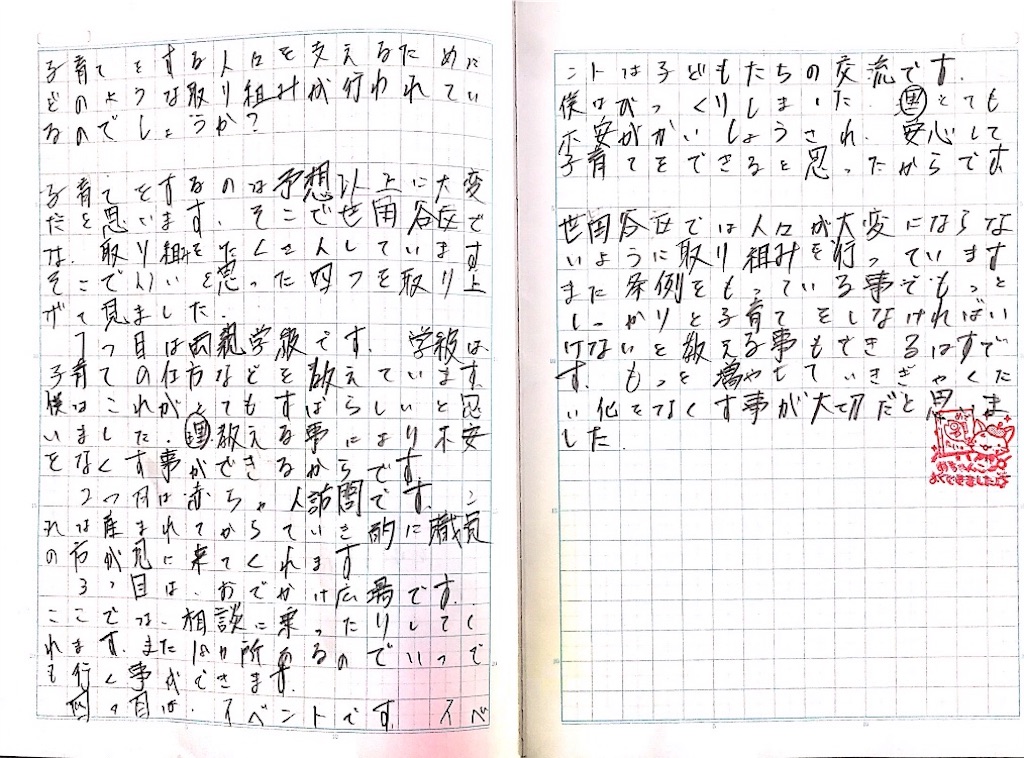 子育てをする人々を支えるために
どのような取り組みが行われてい
るのでしょうか?
子育てをするのは予想以上に大変
だと思います。そこで世田谷区で
は、取り組みをたくさんしています
そこでいいと思った四つを取り上
げて見ました。
1つ目は両親学級です。学級は
子育ての仕方などを教えています。
僕はこれがとてもすばらしいと思
いました。理教える事により不安
をなくす事ができるからです。
2つ目は赤ちゃん訪問です。こ
れは産まれてからていき的に職員
の方が見に来てくれます
3つ目は、おでかけ広場です。
ここでは、相談に乗ったりしてく
れます。また18か所あるのでいつで
も行く事ができます。
四つ目は、イベントです。イベ
ントは子どもたちの交流です。
僕はびっくりしました。理とても
不安がかいしょうされ、安心して
子育てをできると思ったからです
世田谷区では人々が大変にならな
いように取り組みを行っています
また条例をもっている事でもっと
しっかりと子育てをしなければい
けないと教える事もできるはずで
す。もっと増やしていきぎゃくた
い化をなくす事が大切だと思いま
した。
めで
たい
よくできました